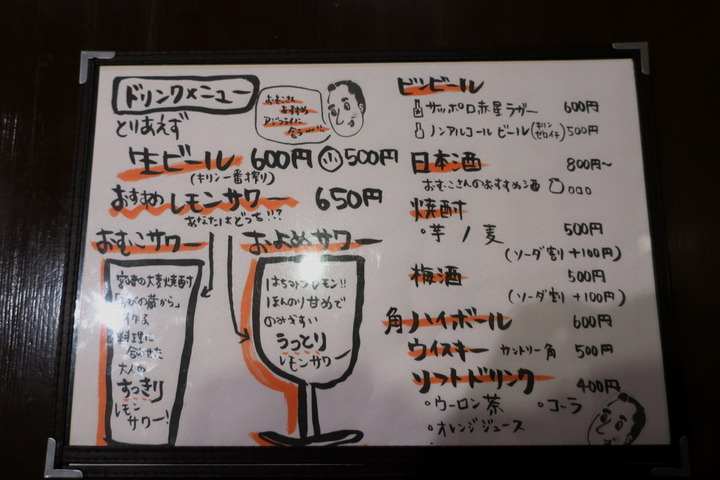 ドリンクメニュー
とりあえず
生ビール 600円 小 500円
(キリン一番搾り)
おすすめレモンサワー 650円
あなたはどっち!!?
おむこサワー
おむこさん
おすすめ
アジフライに
合う
宮崎の大麦焼酎
から」
で作る
料理に
合わせた
大人の
すっきり
レモン
サワー!
およめサワー
はちみつレモン!!
ほんのり甘めで
のみやすい
うっとり
レモンサワー
ビンビール
サッポロ赤星ラガー 600円
ノンアルコールビール(キリンゼロイチ) 500円
日本酒 800円〜
おむこさんのおすすめ酒
焼酎
・芋 / 麦 500円
(ソーダ割 +100円)
梅酒 500円
(ソーダ割 +100円)
角ハイボール 600円
ウイスキー カントリー角 500円
ソフトドリンク 400円
・ウーロン茶 ・コーラ
・オレンジジュース